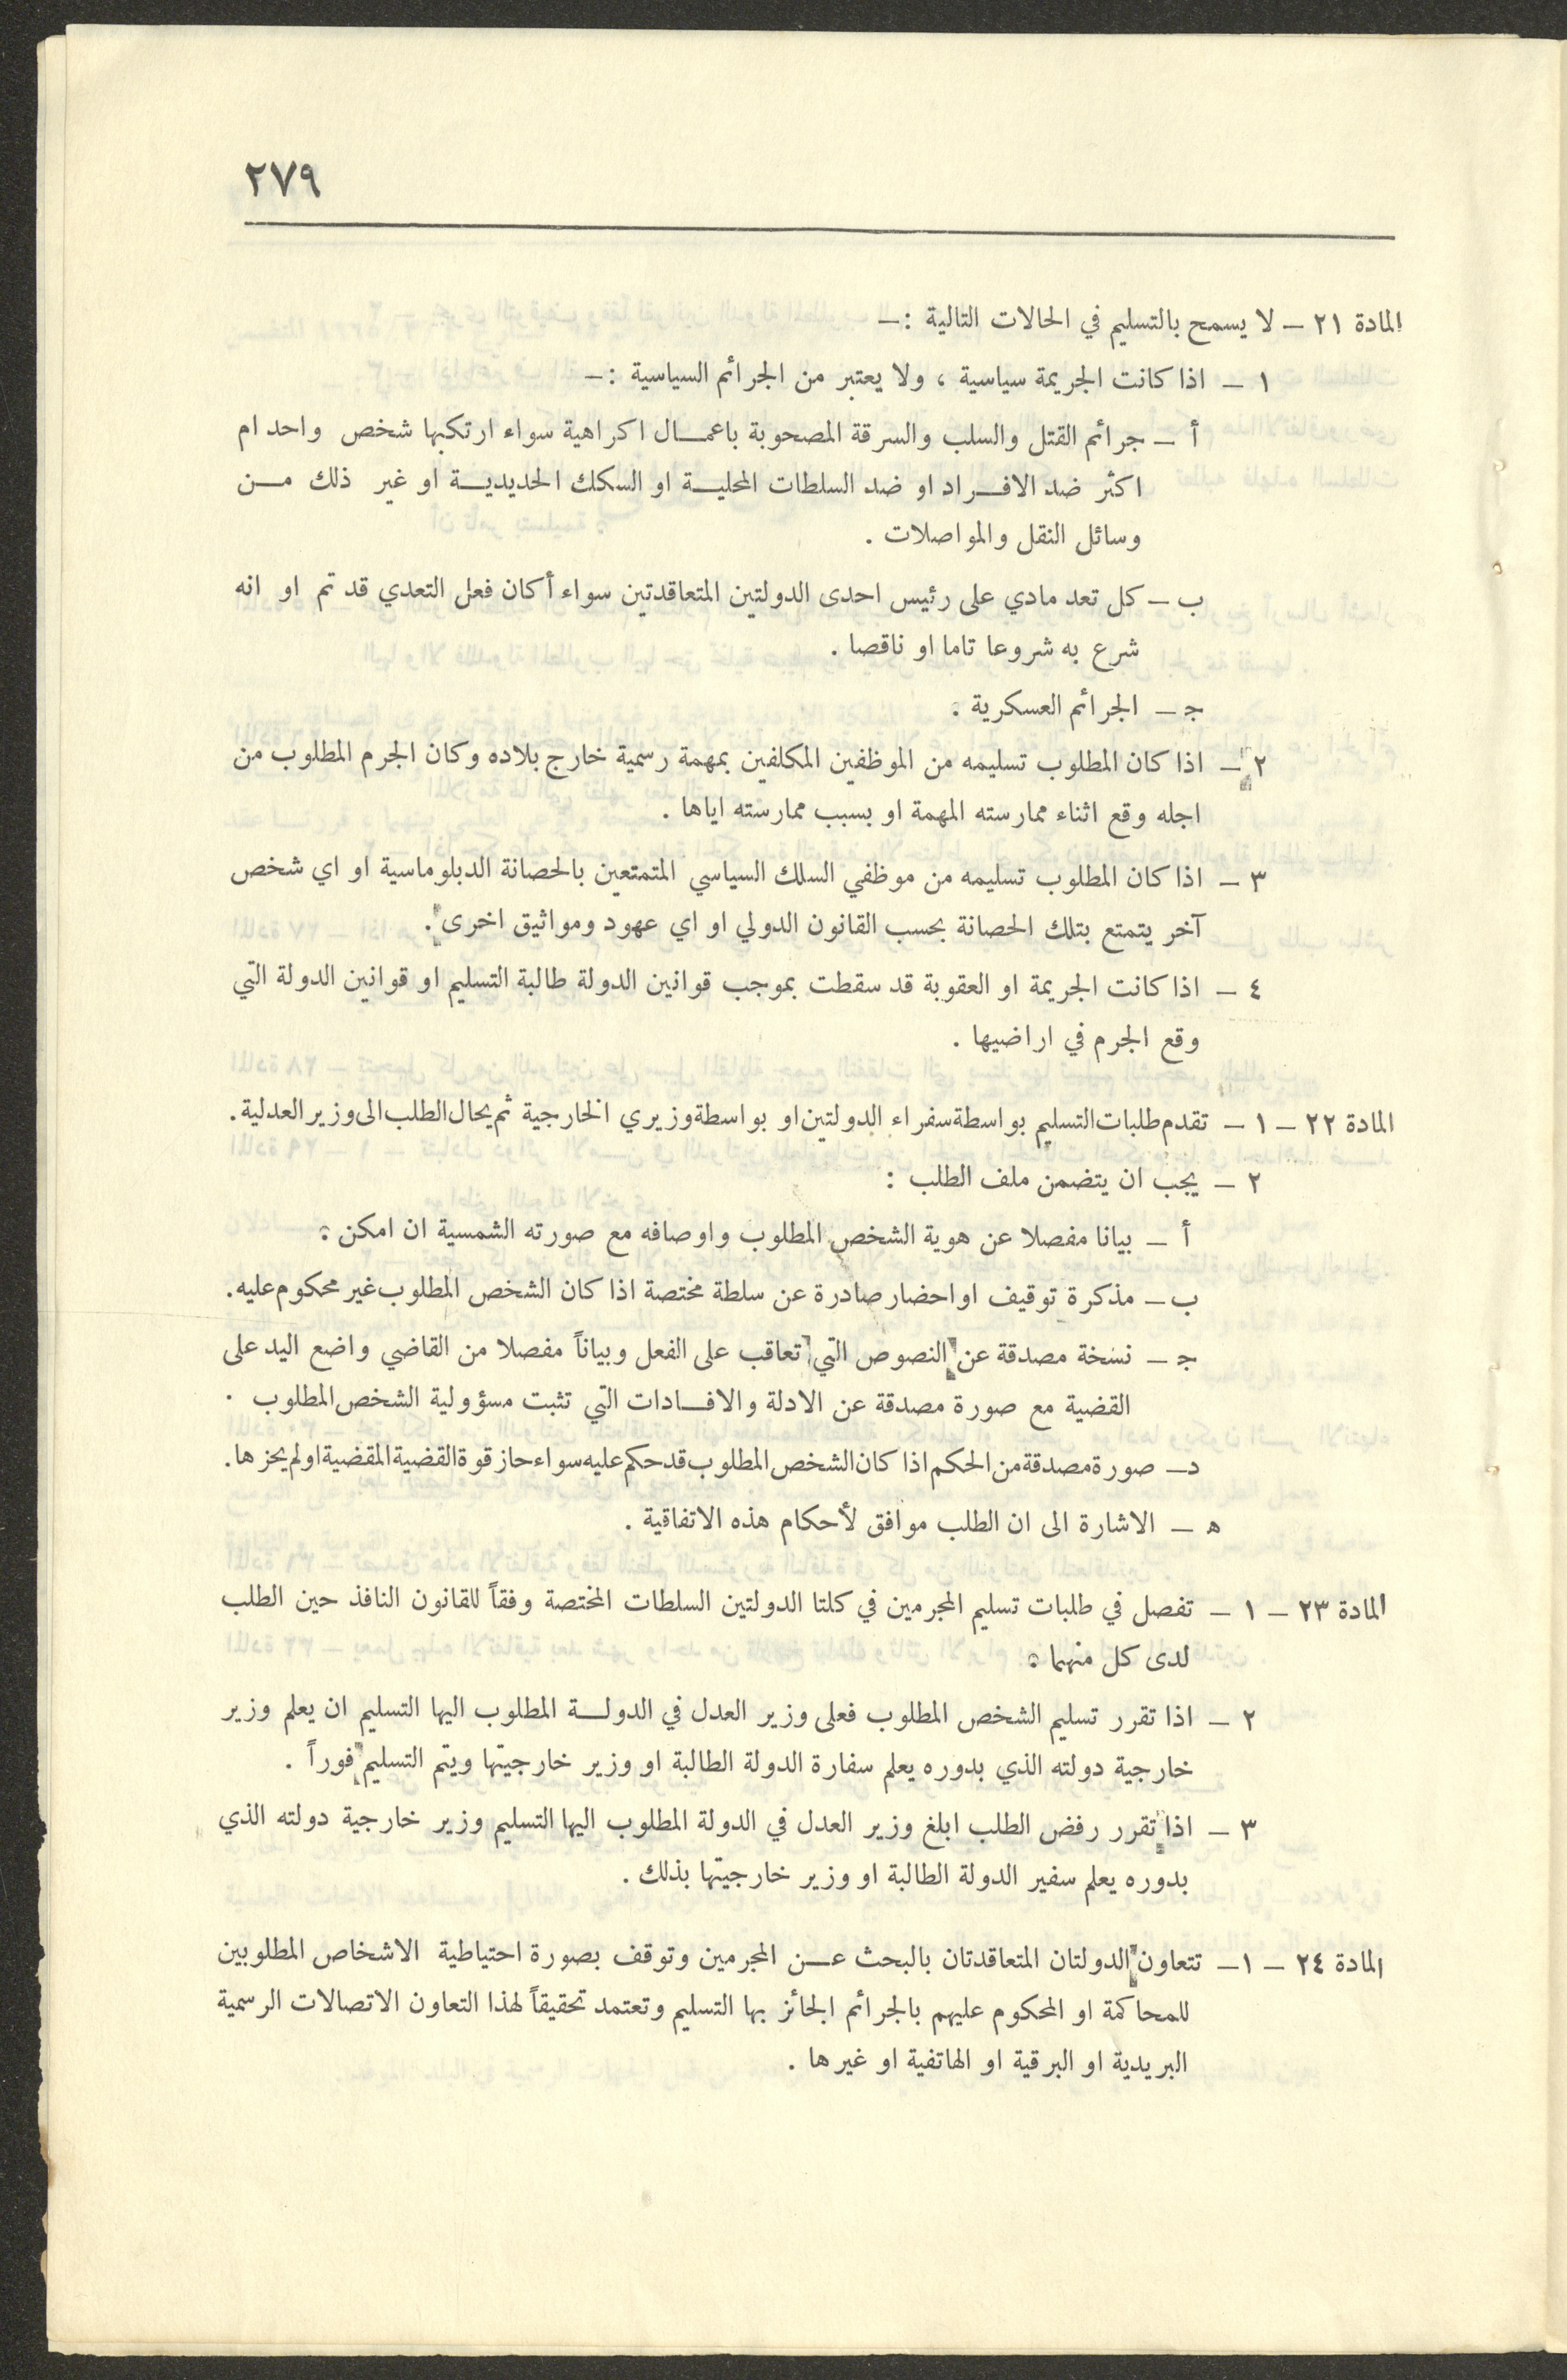 ٢٧٩
المادة ٢١ — لا يسمح بالتسليم في الحالات التالية :—
١ — اذا كانت الجريمة سياسية ، ولا يعتبر من الجرائم السياسية :—
أ — جرائم القتل والسلب والسرقة المصحوبة باعمــال اكراهية سواء ارتكبها شخص واحد ام
اكثر ضد الافــراد او ضد السلطات المحليــة او السكك الحديديــة او غير ذلك مــن
وسائل النقل والمواصلات .
ب — كل تعد مادي على رئيس احدى الدولتين المتعاقدتين سواء أكان فعل التعدي قد تم او انه
شرع به شروعا تاما او ناقصا .
ج — الجرائم العسكرية .
٢ — اذا كان المطلوب تسليمه من الموظفين المكلفين بمهمة رسمية خارج بلاده وكان الجرم المطلوب من
اجله وقع اثناء ممارسته المهمة او بسبب ممارسته اياها .
٣ — اذا كان المطلوب تسليمه من موظفي السلك السياسي المتمتعين بالحصانة الدبلوماسية او اي شخص
آخر يتمتع بتلك الحصانة بحسب القانون الدولي او اي عهود ومواثيق اخرى .
٤ — اذا كانت الجريمة او العقوبة قد سقطت بموجب قوانين الدولة طالبة التسليم او قوانين الدولة التي
وقع الجرم في اراضيها .
المادة ٢٢ — ١ — تقدم طلبات التسليم بواسطة سفراء الدولتين او بواسطة وزيري الخارجية ثم يحال الطلب الى وزير العدلية .
٢ — يجب ان يتضمن ملف الطلب :
أ — بيانا مفصلا عن هوية الشخص المطلوب واوصافه مع صورته الشمسية ان امكن .
ب — مذكرة توقيف او احضار صادرة عن سلطة مختصة اذا كان الشخص المطلوب غير محكوم عليه .
ج — نسخة مصدقة عن النصوص التي تعاقب على الفعل وبياناً مفصلا من القاضي واضع اليد على
القضية مع صورة مصدقة عن الادلة والافــادات التي تثبت مسؤولية الشخص المطلوب .
د — صورة مصدقة من الحكم اذا كان الشخص المطلوب قد حكم عليه سواء حاز قوة القضية المقضية او لم يحزها .
ه — الاشارة الى ان الطلب موافق لأحكام هذه الاتفاقية .
المادة ٢٣ — ١ — تفصل في طلبات تسليم المجرمين في كلتا الدولتين السلطات المختصة وفقاً للقانون النافذ حين الطلب
لدى كل منهما .
٢ — اذا تقرر تسليم الشخص المطلوب فعلى وزير العدل في الدولــة المطلوب اليها التسليم ان يعلم وزير
خارجية دولته الذي بدوره يعلم سفارة الدولة الطالبة او وزير خارجيتها ويتم التسليم فوراً .
٣ — اذا تقرر رفض الطلب ابلغ وزير العدل في الدولة المطلوب اليها التسليم وزير خارجية دولته الذي
بدوره يعلم سفير الدولة الطالبة او وزير خارجيتها بذلك .
المادة ٢٤ — ١ — تتعاون الدولتان المتعاقدتان بالبحث عــن المجرمين وتوقف بصورة احتياطية الاشخاص المطلوبين
للمحاكمة او المحكوم عليهم بالجرائم الجائز بها التسليم وتعتمد تحقيقاً لهذا التعاون الاتصالات الرسمية
البريدية او البرقية او الهاتفية او غيرها .